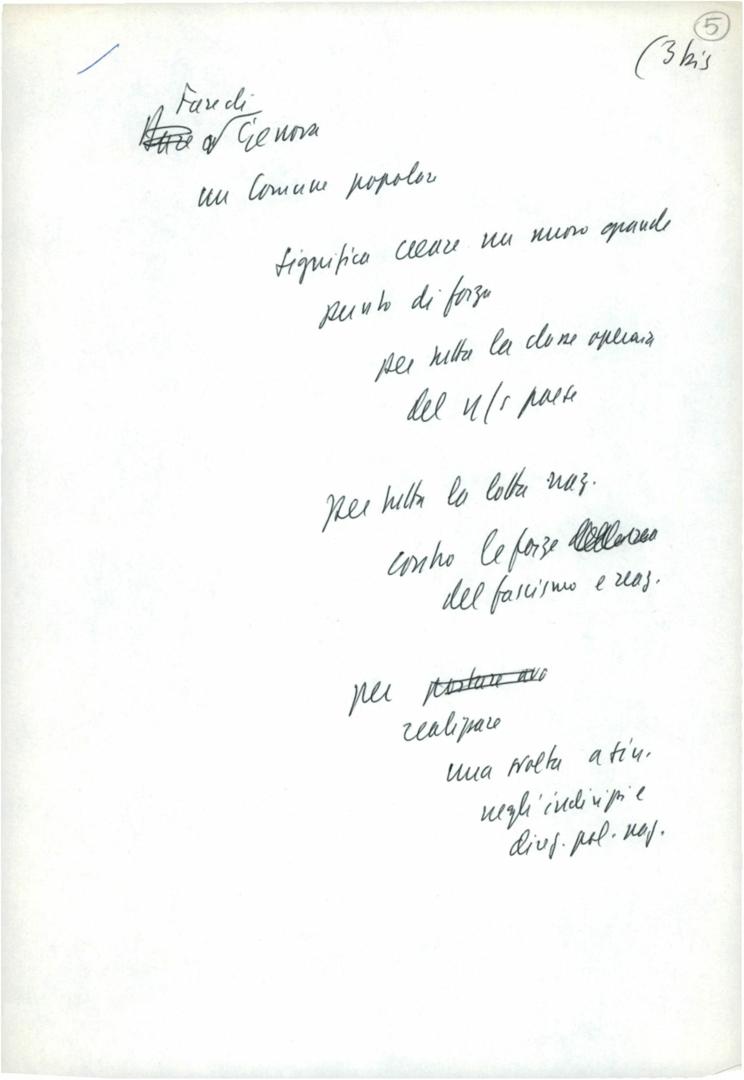 5
(3 bis
Fare di
Genova
un Comune popolare
significa creare un nuovo grande
punto di forza
per tutta la classe operaia
del n/s paese
per tutta la lotta naz.
contro le forze
del fascismo e reaz.
per portare ava
realizzare
una svolta a sin.
negli indirizzi e
direz. pol. naz.